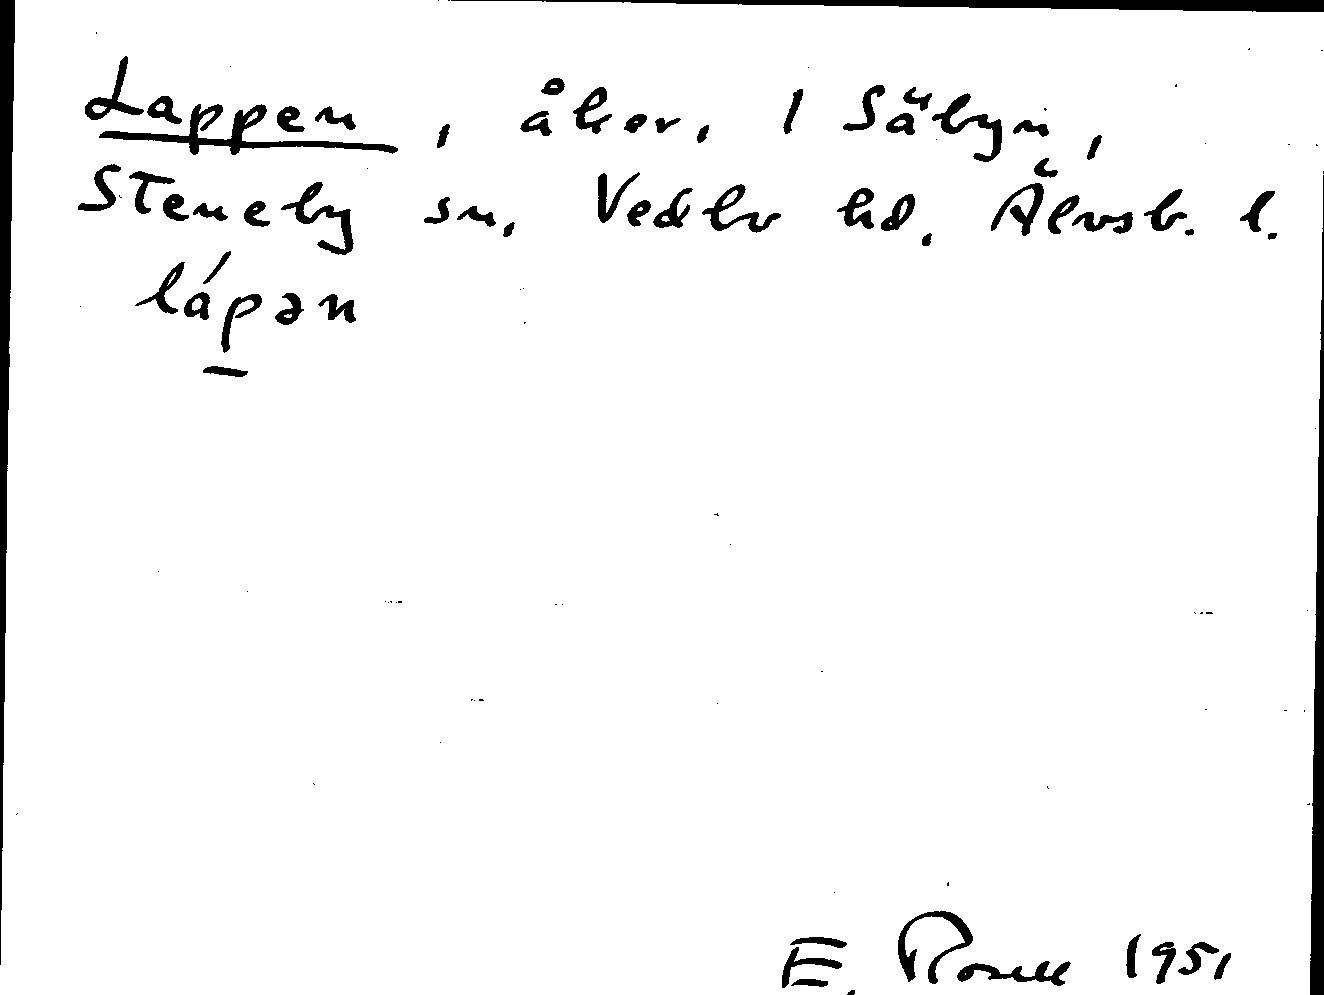 Lappen, åker, 1 Säbyn,
Steneby sn, Vedbo hd. Älvsb. l.
lápən
E. Rosell 1951